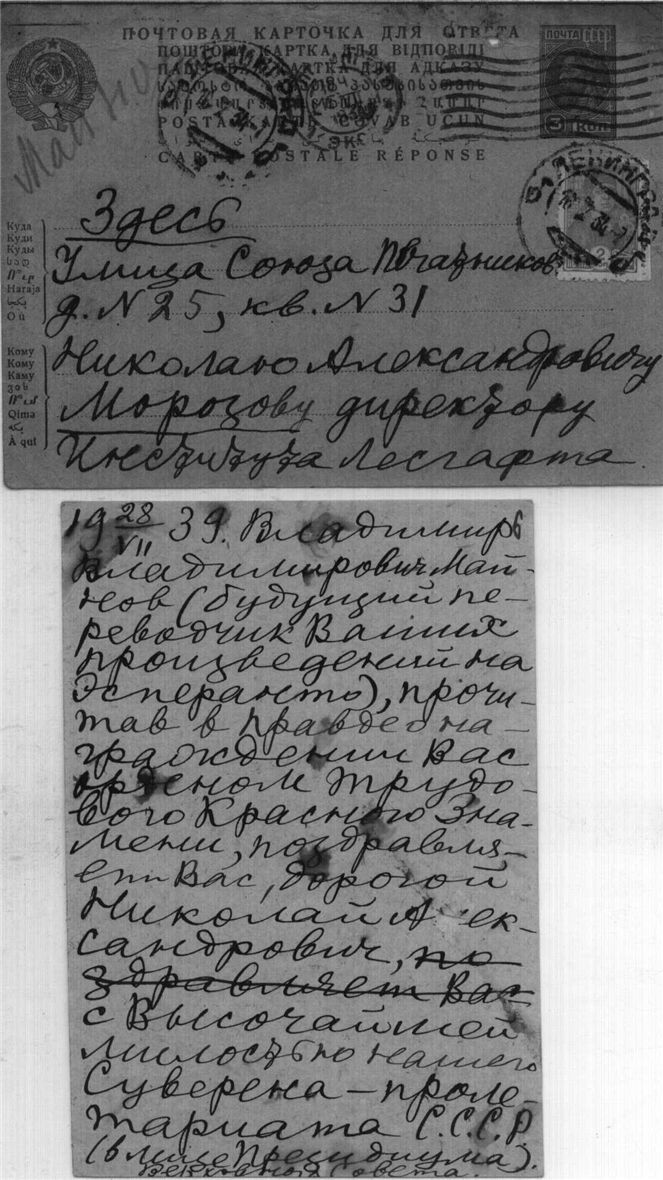 ПОЧТОВАЯ КАРТОЧКА ДЛЯ ОТВЕТА
ПОШТОВА КАРТКА ДЛЯ ВІДПОВІДІ
КАРТКА ДЛЯ АДКАЗУ
CARTE POSTALE RÉPONSE
ПОЧТА
3 КОП
ЛЕНИНГРАД
Здесь
Куда
Куди
Куды
Haraja
Où
Улица Союза Печатников
д. N 25, кв. N 31
Кому
Кому
Каму
Qima
À qui
Николаю Александровичу
Морозову директору
Института Лесгафта.
19 28/VII 39. Владимир
Владимирович Май-
нов (будущий пе-
реводчик Ваших
произведений на
Эсперанто), прочи-
тав в правде о на-
граждении Вас
орденом Трудо-
вого Красного Зна-
мени, поздравля-
ет Вас, дорогой
Николай Алек-
сандрович, по
здравляет Вас
с Высочайшей
милостью нашего
Суверена – проле-
тариата С.С.С.Р.
(в лице Президиума).
Верховного Совета.